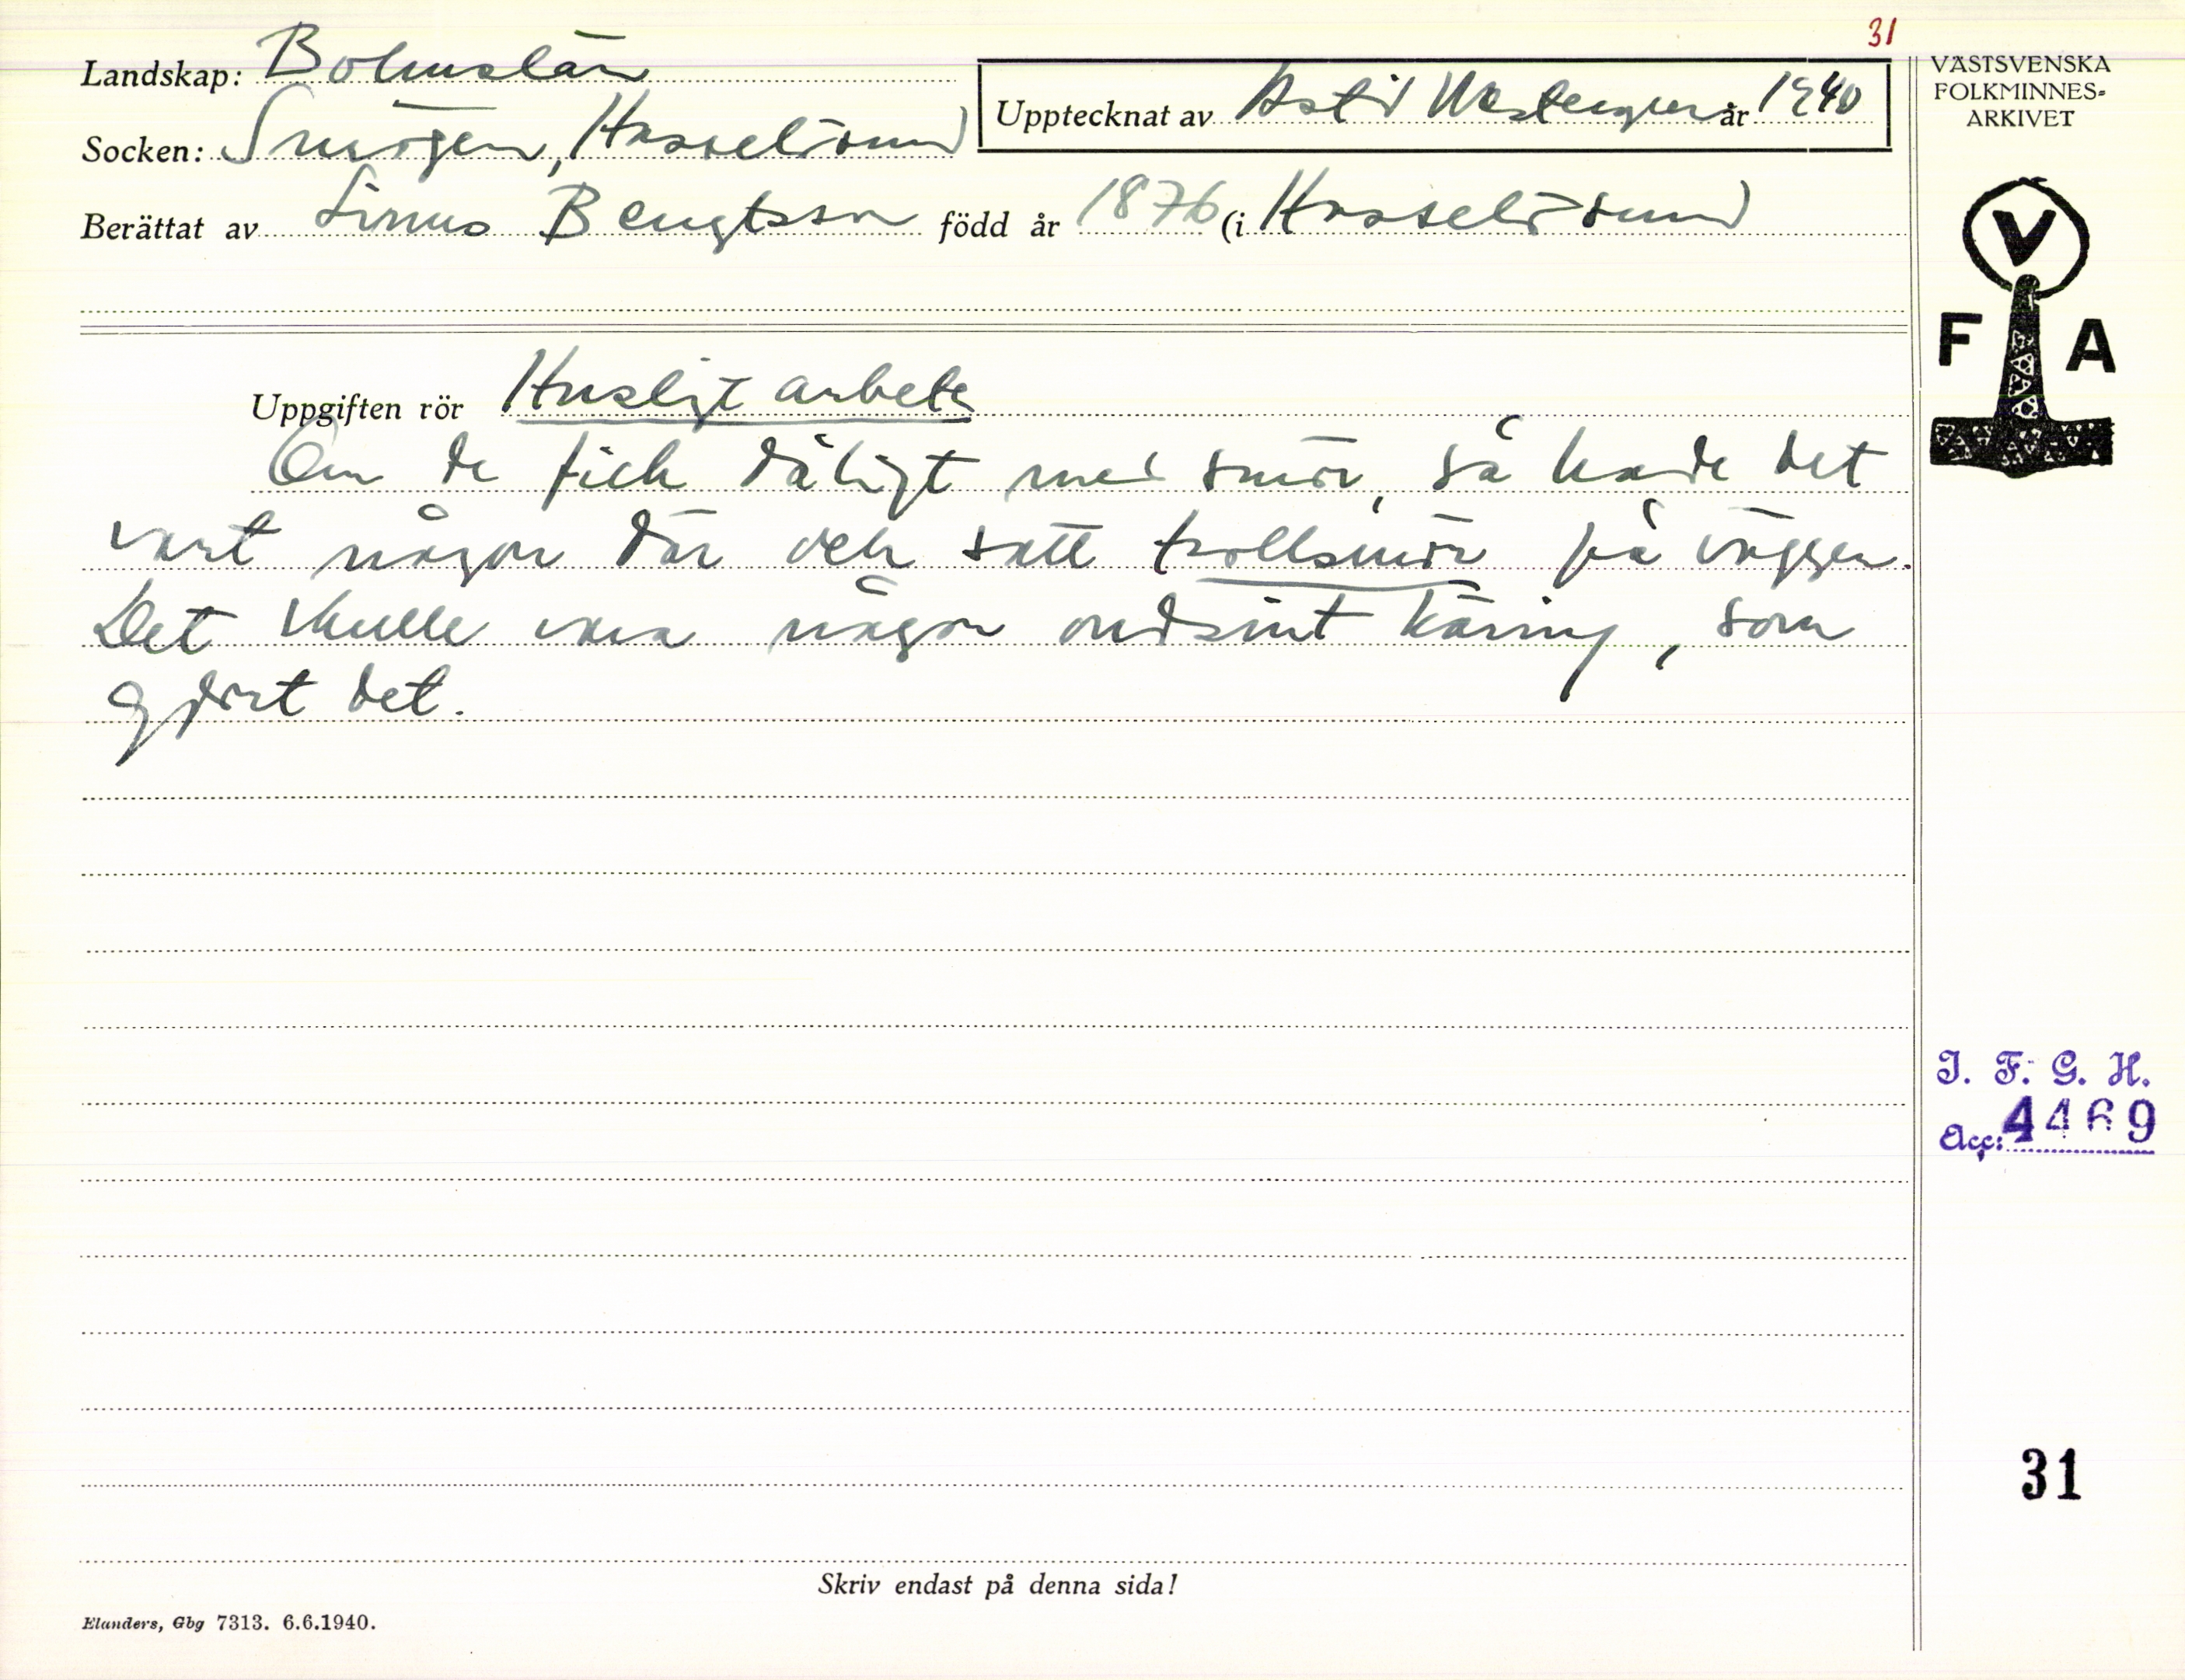 31
Landskap: Bohuslän
Upptecknat av Astrid Westergren år 1940
Socken: Smögen, Hasselösund
Berättat av Linus Bengtsson född år 1876 (i Hasselösund
VÄSTSVENSKA
FOLKMINNES-
ARKIVET
V
F A
Uppgiften rör Husligt arbete
Om de fick dåligt med smör, så hade det
vart någon där och satt trollsmör på väggen.
Det skulle vara någon ondsint käring, som
gjort det.
I. F. G. H.
Acc: 4469
31
Skriv endast på denna sida!
Elanders, Gbg 7313. 6.6.1940.